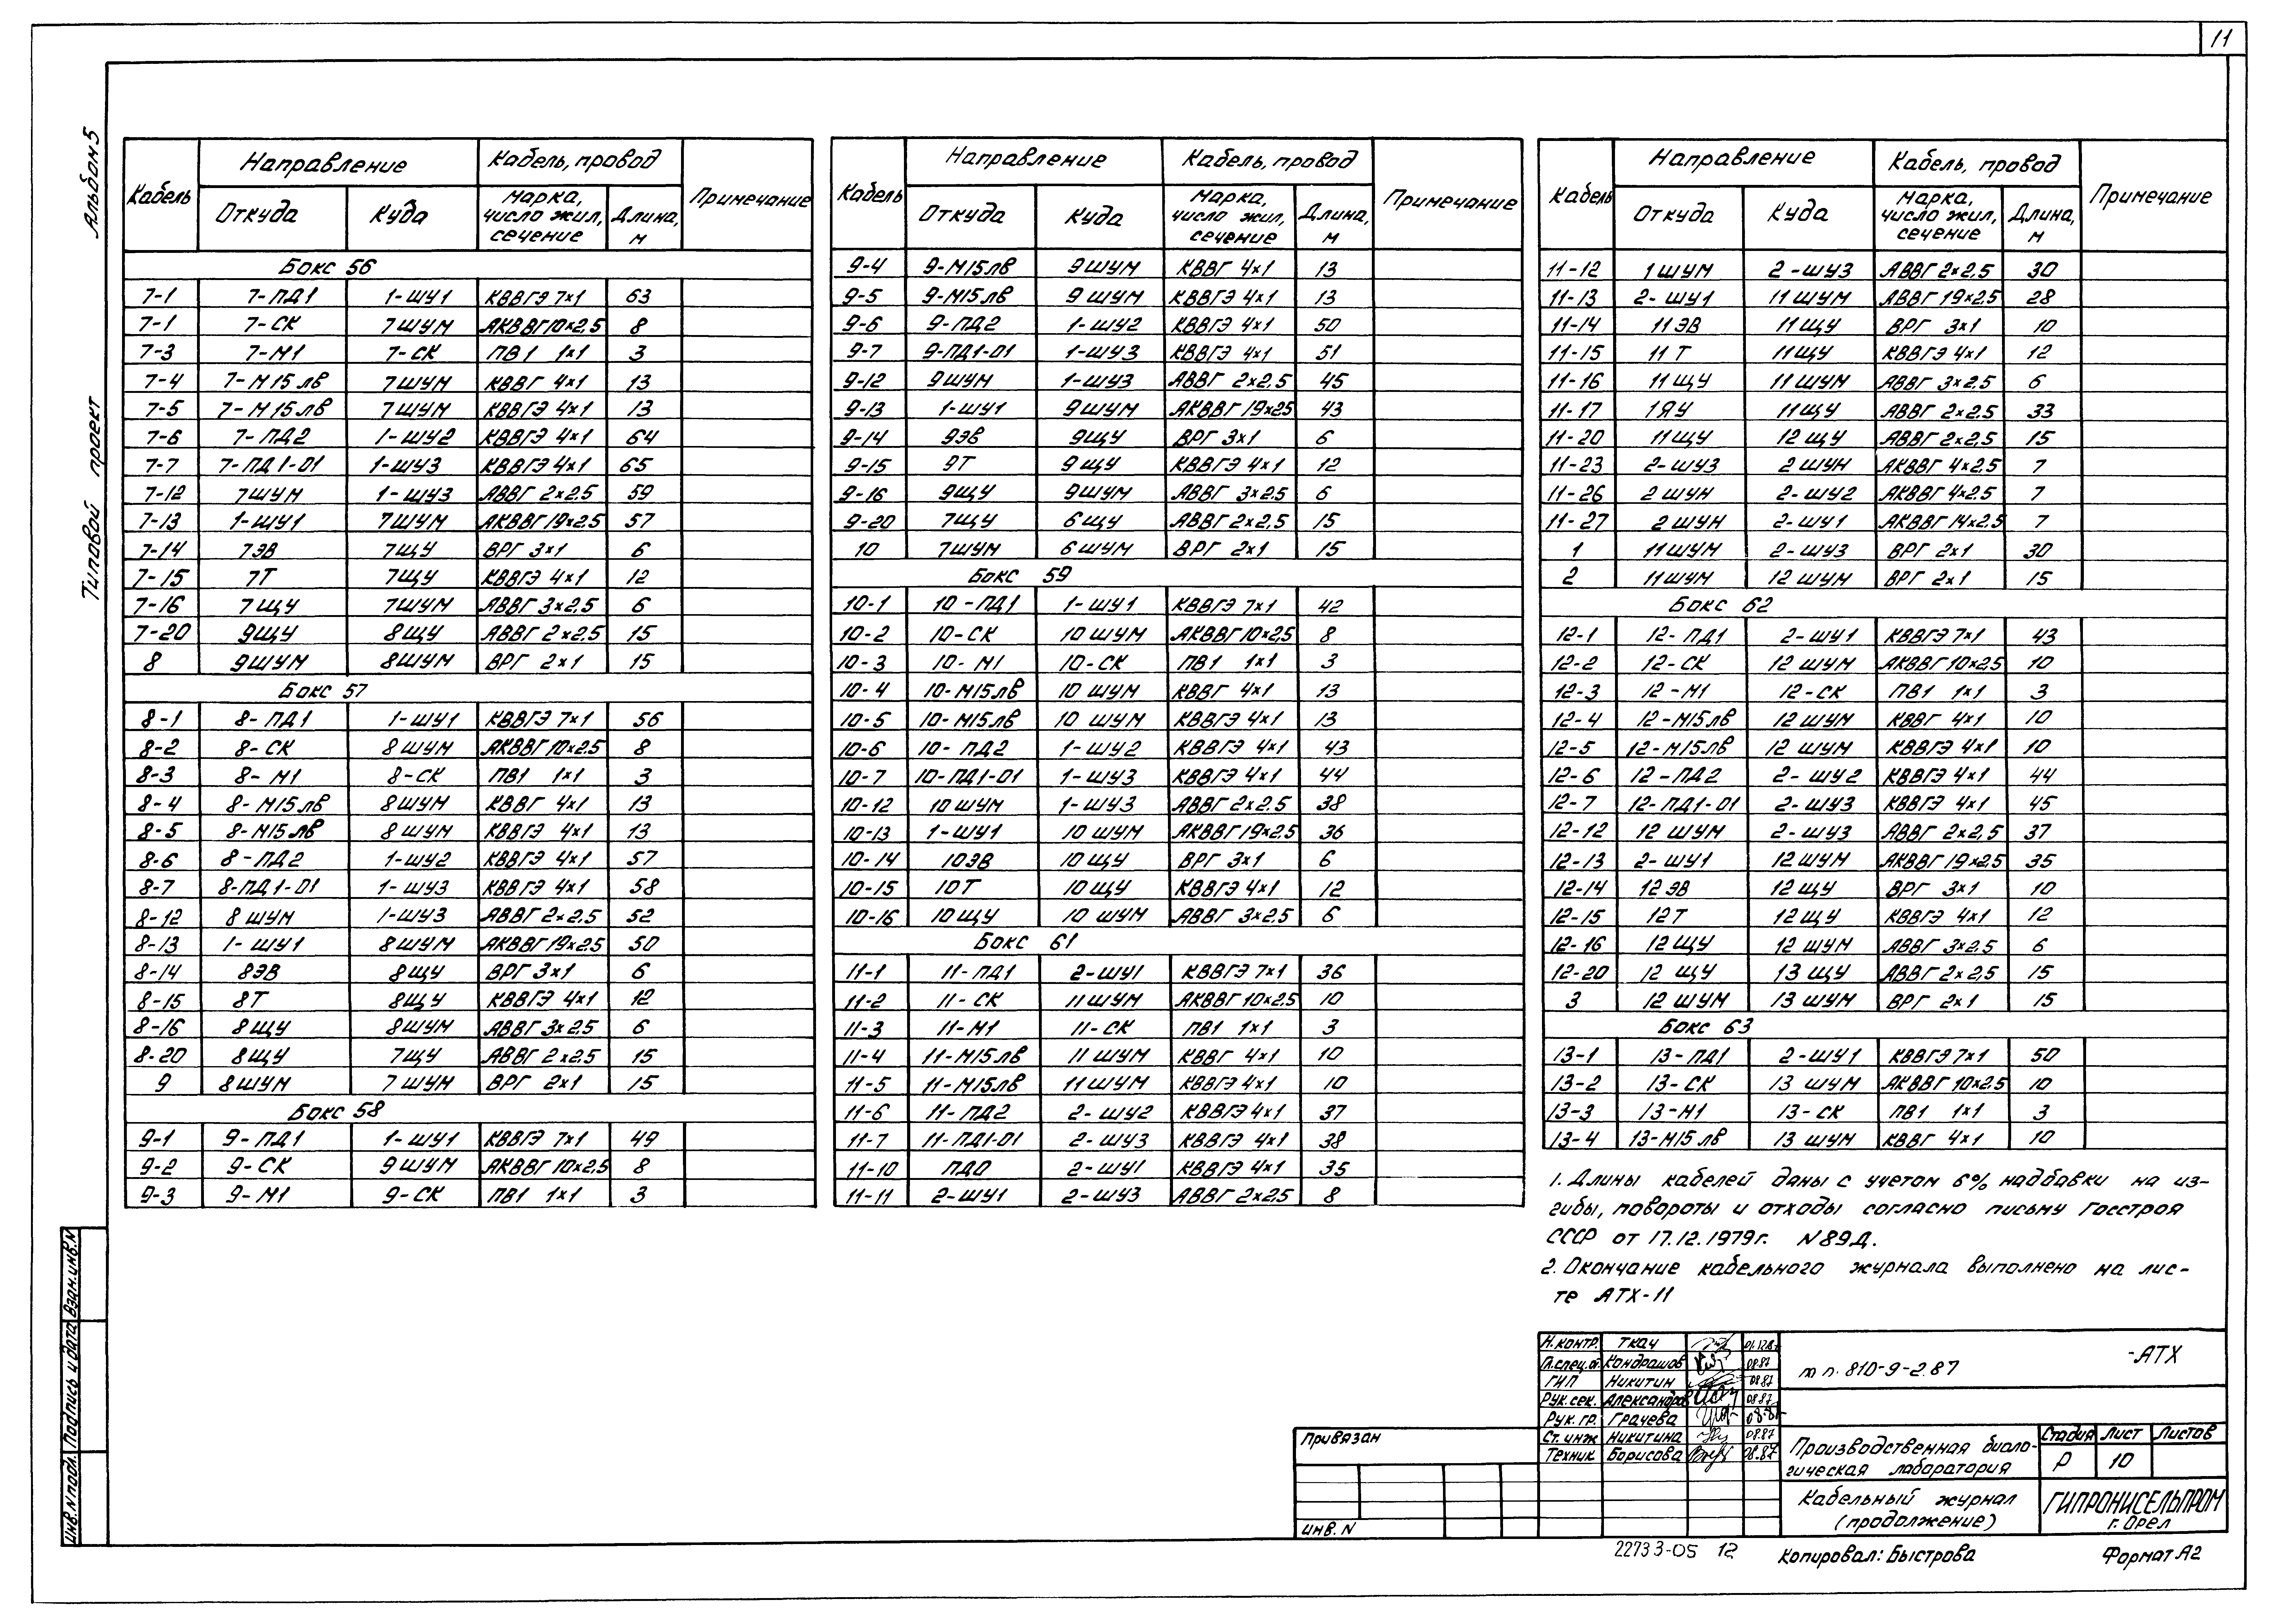 11
Альбом 5
Типовой проект
Кабель Направление Кабель, провод Примечание
Откуда Куда Марка, число жил, сечение Длина, м
Бокс 56
7-1 7-ПД1 1-ШУ1 КВВГЭ 7×1 63
7-1 7-СК 7ШУМ АКВВГ10×2,5 8
7-3 7-М1 7-СК ПВ1 1×1 3
7-4 7-М15лв 7ШУМ КВВГ 4×1 13
7-5 7-М15лв 7ШУМ КВВГЭ 4×1 13
7-6 7-ПД2 1-ШУ2 КВВГЭ 4×1 64
7-7 7-ПД1-01 1-ШУ3 КВВГЭ 4×1 65
7-12 7ШУМ 1-ШУ3 АВВГ 2×2,5 59
7-13 1-ШУ1 7ШУМ АКВВГ19×2,5 57
7-14 7ЭВ 7ЩУ ВРГ 3×1 6
7-15 7Т 7ЩУ КВВГЭ 4×1 12
7-16 7ЩУ 7ШУМ АВВГ 3×2,5 6
7-20 9ЩУ 8ЩУ АВВГ 2×2,5 15
8 9ШУМ 8ШУМ ВРГ 2×1 15
Бокс 57
8-1 8-ПД1 1-ШУ1 КВВГЭ 7×1 56
8-2 8-СК 8ШУМ АКВВГ10×2,5 8
8-3 8-М1 8-СК ПВ1 1×1 3
8-4 8-М15лв 8ШУМ КВВГ 4×1 13
8-5 8-М15лв 8ШУМ КВВГЭ 4×1 13
8-6 8-ПД2 1-ШУ2 КВВГЭ 4×1 57
8-7 8-ПД1-01 1-ШУ3 КВВГЭ 4×1 58
8-12 8ШУМ 1-ШУ3 АВВГ 2×2,5 52
8-13 1-ШУ1 8ШУМ АКВВГ19×2,5 50
8-14 8ЭВ 8ЩУ ВРГ 3×1 6
8-15 8Т 8ЩУ КВВГЭ 4×1 12
8-16 8ЩУ 8ШУМ АВВГ 3×2,5 6
8-20 8ЩУ 7ЩУ АВВГ 2×2,5 15
9 8ШУМ 7ШУМ ВРГ 2×1 15
Бокс 58
9-1 9-ПД1 1-ШУ1 КВВГЭ 7×1 49
9-2 9-СК 9ШУМ АКВВГ10×2,5 8
9-3 9-М1 9-СК ПВ1 1×1 3
Кабель Направление Кабель, провод Примечание
Откуда Куда Марка, число жил, сечение Длина, м
9-4 9-М15лв 9ШУМ КВВГ 4×1 13
9-5 9-М15лв 9ШУМ КВВГЭ 4×1 13
9-6 9-ПД2 1-ШУ2 КВВГЭ 4×1 50
9-7 9-ПД1-01 1-ШУ3 КВВГЭ 4×1 51
9-12 9ШУМ 1-ШУ3 АВВГ 2×2,5 45
9-13 1-ШУ1 9ШУМ АКВВГ19×25 43
9-14 9ЭВ 9ЩУ ВРГ 3×1 6
9-15 9Т 9ЩУ КВВГЭ 4×1 12
9-16 9ЩУ 9ШУМ АВВГ 3×2,5 6
9-20 7ЩУ 6ЩУ АВВГ 2×2,5 15
10 7ШУМ 6ШУМ ВРГ 2×1 15
Бокс 59
10-1 10-ПД1 1-ШУ1 КВВГЭ 7×1 42
10-2 10-СК 10ШУМ АКВВГ10×2,5 8
10-3 10-М1 10-СК ПВ1 1×1 3
10-4 10-М15лв 10ШУМ КВВГ 4×1 13
10-5 10-М15лв 10ШУМ КВВГЭ 4×1 13
10-6 10-ПД2 1-ШУ2 КВВГЭ 4×1 43
10-7 10-ПД1-01 1-ШУ3 КВВГЭ 4×1 44
10-12 10ШУМ 1-ШУ3 АВВГ 2×2,5 38
10-13 1-ШУ1 10ШУМ АКВВГ19×2,5 36
10-14 10ЭВ 10ЩУ ВРГ 3×1 6
10-15 10Т 10ЩУ КВВГЭ 4×1 12
10-16 10ЩУ 10ШУМ АВВГ 3×2,5 6
Бокс 61
11-1 11-ПД1 2-ШУ1 КВВГЭ 7×1 36
11-2 11-СК 11ШУМ АКВВГ10×2,5 10
11-3 11-М1 11-СК ПВ1 1×1 3
11-4 11-М15лв 11ШУМ КВВГ 4×1 10
11-5 11-М15лв 11ШУМ КВВГЭ 4×1 10
11-6 11-ПД2 2-ШУ2 КВВГЭ 4×1 37
11-7 11-ПД1-01 2-ШУ3 КВВГЭ 4×1 38
11-10 ПДО 2-ШУ1 КВВГЭ 4×1 35
11-11 2-ШУ1 2-ШУ3 АВВГ 2×2,5 8
Кабель Направление Кабель, провод Примечание
Откуда Куда Марка, число жил, сечение Длина, м
11-12 1ШУМ 2-ШУ3 АВВГ 2×2,5 30
11-13 2-ШУ1 11ШУМ АВВГ 19×2,5 28
11-14 11ЭВ 11ЩУ ВРГ 3×1 10
11-15 11Т 11ЩУ КВВГЭ 4×1 12
11-16 11ЩУ 11ШУМ АВВГ 3×2,5 6
11-17 1ЯУ 11ЩУ АВВГ 2×2,5 33
11-20 11ЩУ 12ЩУ АВВГ 2×2,5 15
11-23 2-ШУ3 2ШУН АКВВГ 4×2,5 7
11-26 2ШУН 2-ШУ2 АКВВГ 4×2,5 7
11-27 2ШУН 2-ШУ1 АКВВГ14×2,5 7
1 11ШУМ 2-ШУ3 ВРГ 2×1 30
2 11ШУМ 12ШУМ ВРГ 2×1 15
Бокс 62
12-1 12-ПД1 2-ШУ1 КВВГЭ 7×1 43
12-2 12-СК 12ШУМ АКВВГ10×2,5 10
12-3 12-М1 12-СК ПВ1 1×1 3
12-4 12-М15лв 12ШУМ КВВГ 4×1 10
12-5 12-М15лв 12ШУМ КВВГЭ 4×1 10
12-6 12-ПД2 2-ШУ2 КВВГЭ 4×1 44
12-7 12-ПД1-01 2-ШУ3 КВВГЭ 4×1 45
12-12 12ШУМ 2-ШУ3 АВВГ 2×2,5 37
12-13 2-ШУ1 12ШУМ АКВВГ19×2,5 35
12-14 12ЭВ 12ЩУ ВРГ 3×1 10
12-15 12Т 12ЩУ КВВГЭ 4×1 12
12-16 12ЩУ 12ШУМ АВВГ 3×2,5 6
12-20 12ЩУ 13ЩУ АВВГ 2×2,5 15
3 12ШУМ 13ШУМ ВРГ 2×1 15
Бокс 63
13-1 13-ПД1 2-ШУ1 КВВГЭ 7×1 50
13-2 13-СК 13ШУМ АКВВГ10×2,5 10
13-3 13-М1 13-СК ПВ1 1×1 3
13-4 13-М15лв 13ШУМ КВВГ 4×1 10
1. Длины кабелей даны с учетом 6% надбавки на из-
гибы, повороты и отходы согласно письму Госстроя
СССР от 17.12.1979г. N89Д.
2. Окончание кабельного журнала выполнено на лис-
те АТХ-11
Н.контр. Ткач
Гл.спец.от. Кондрашов 08.87
ГИП Никитин 08.87
Рук.сек. Александров 08.87
Рук.гр. Грачева 08.87
Ст.инж Никитина 08.87
Техник Борисова 08.87
т п. 810-9-2.87 -АТХ
Производственная биоло-
гическая лаборатория
Стадия Лист Листов
Р 10
Кабельный журнал
(продолжение)
ГИПРОНИСЕЛЬПРОМ
г. Орел
Привязан
Инв. N
Инв.N подл. Подпись и дата Взам.инв.N
22733-05 12
Копировал: Быстрова
Формат А2